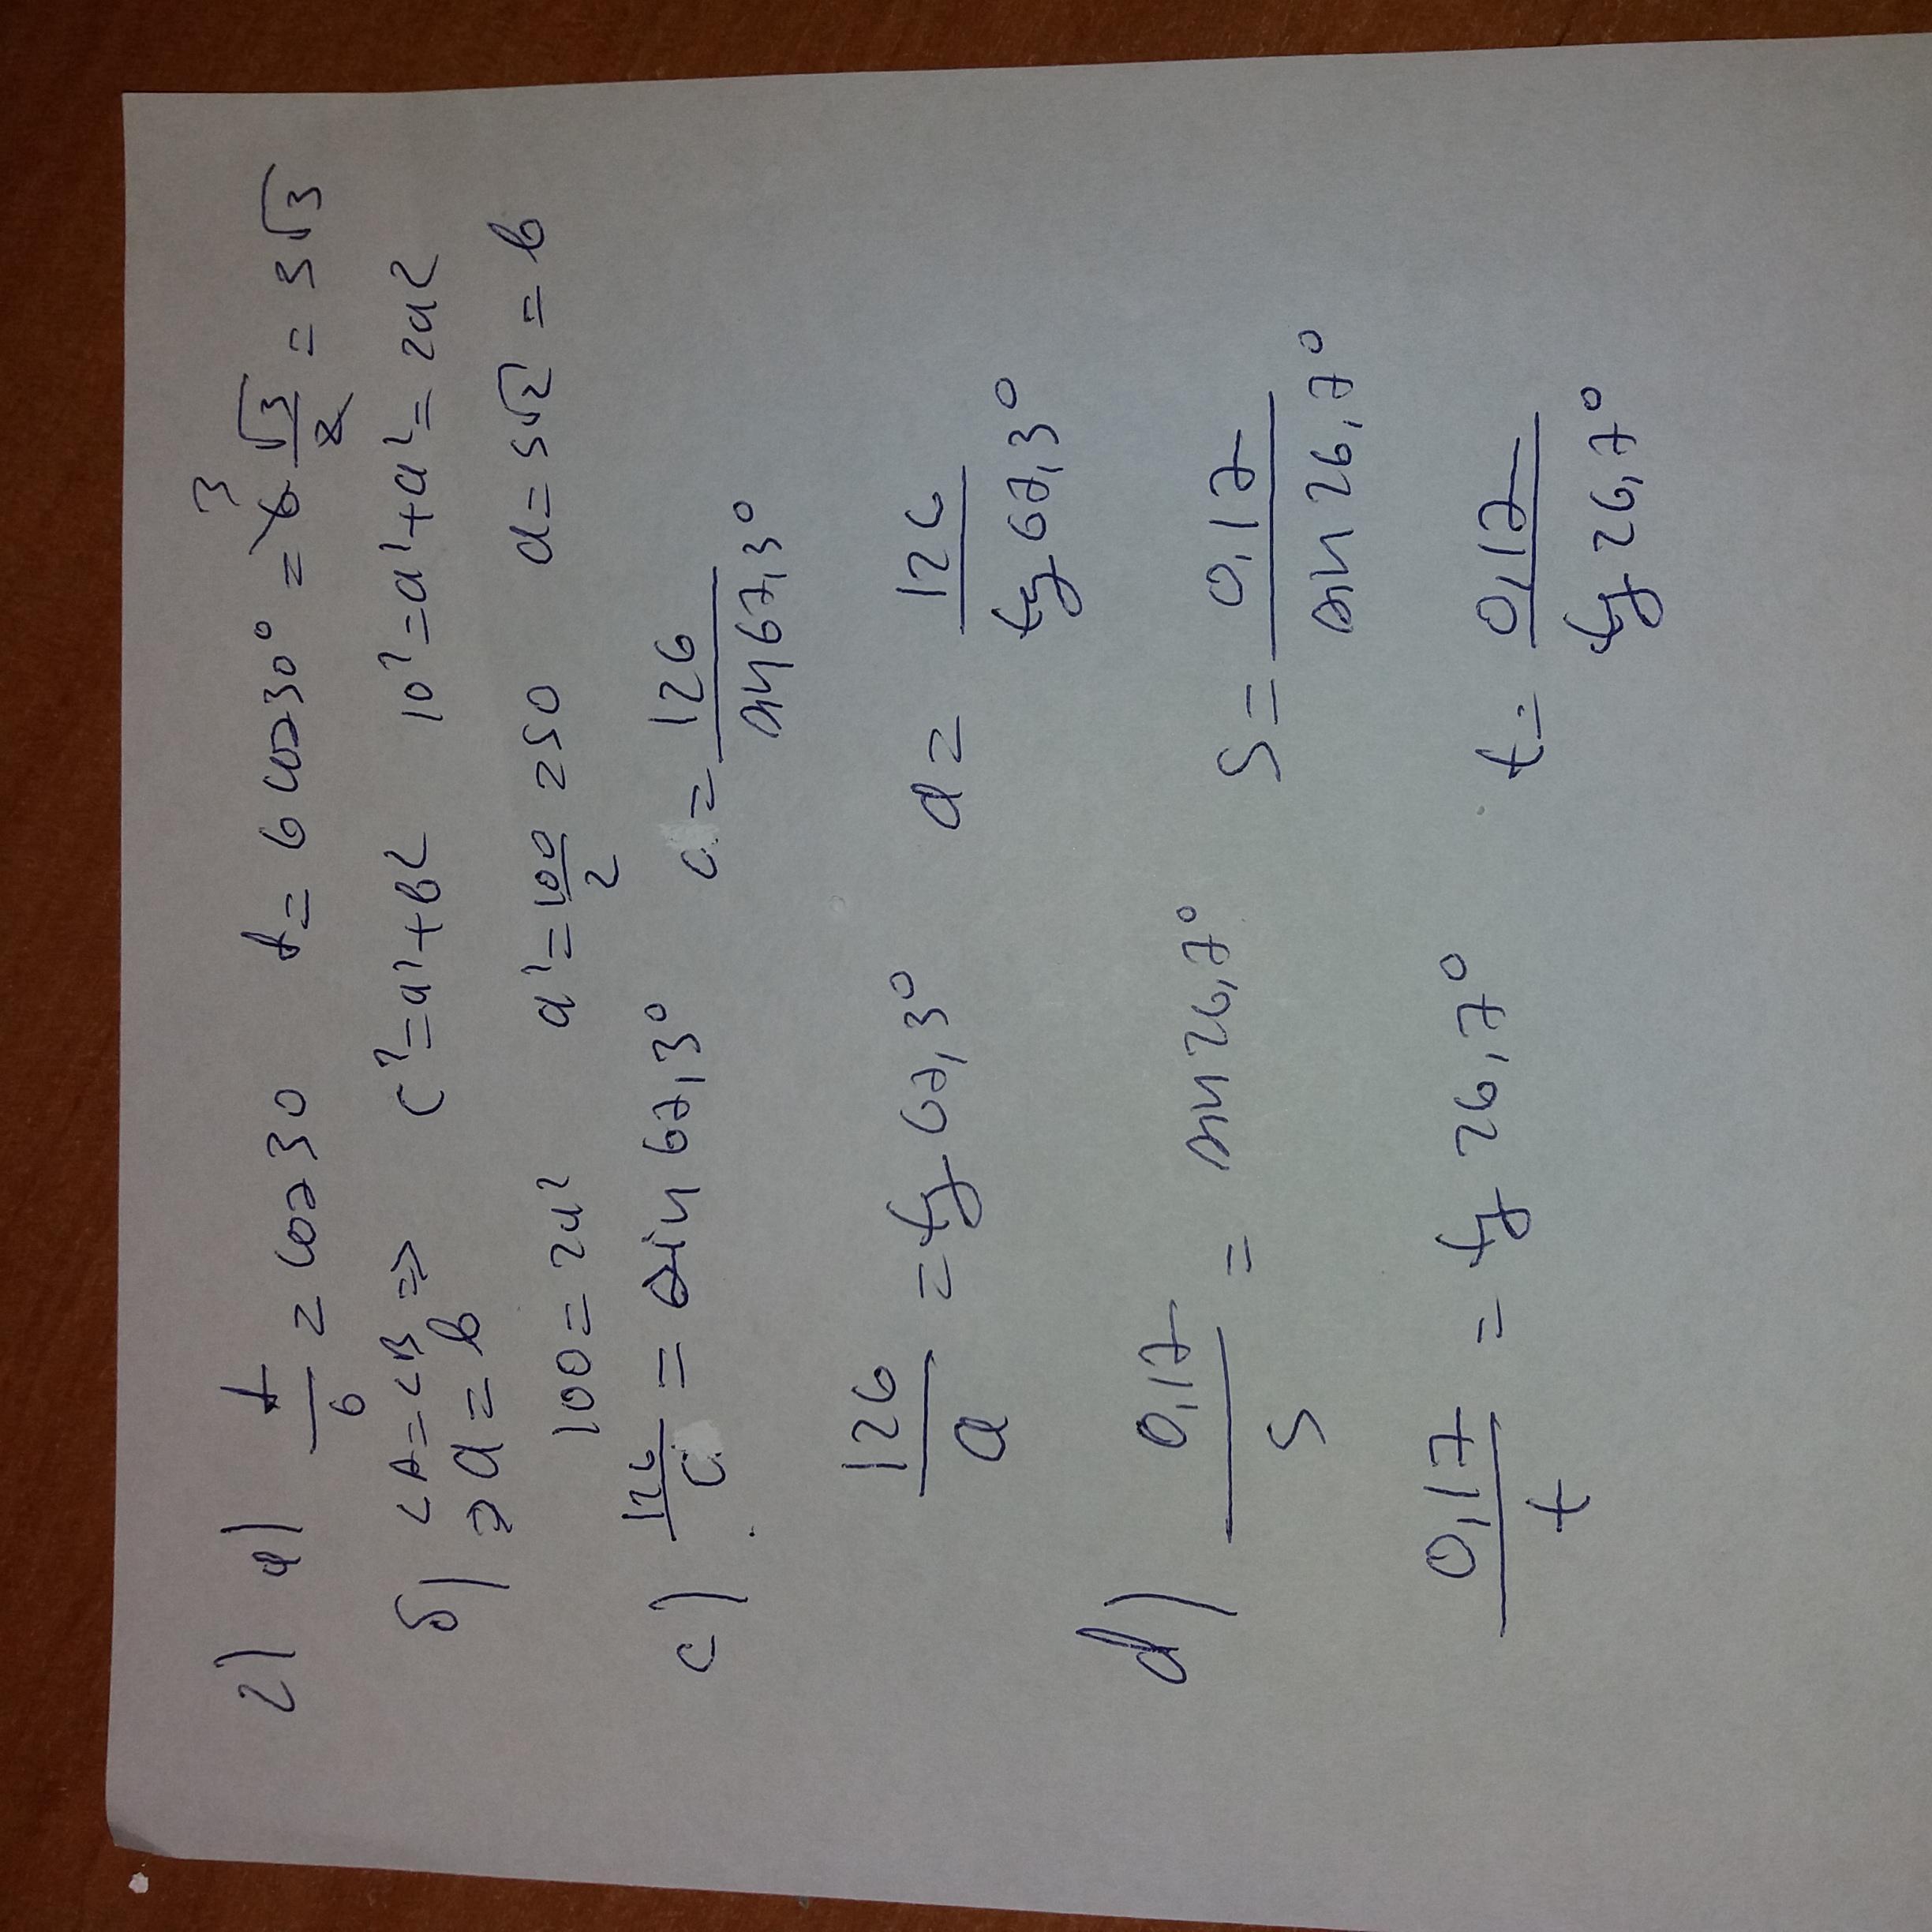 2) a) t/6 = cos 30 t = 6 cos 30° = 6 · √3/2 = 3√3 3
б) <A = <B => c² = a² + b² 10² = a² + a² = 2a²
=> a = b
100 = 2a² a² = 100/2 = 50 a = 5√2 = b
c) 126/c = sin 67,3° c = 126/sin 67,3°
126/a = tg 67,3° a = 126/tg 67,3°
d) 0,17/s = sin 26,7° s = 0,17/sin 26,7°
0,17/t = tg 26,7° t = 0,17/tg 26,7°